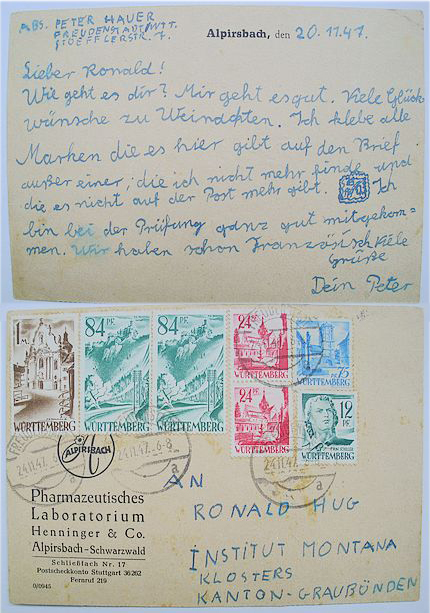 ABS. PETER HAUER
FREUDENSTADT/WTT.
STOEFFLERSTR. 7.
Alpirsbach, den 20.11.47.
Lieber Ronald!
Wie geht es dir? Mir geht es gut. Viele Glück
wünsche zu Weinachten. Ich klebe alle
Marken die es hier gibt auf den Brief
außer einer, die ich nicht mehr finde und
die es nicht auf der Post mehr gibt. Ich
bin bei der Prüfung ganz gut mitgekom=
men. Wir haben schon Französisch Viele
Grüße
Dein Peter
WÜRTTEMBERG
84 PF
WÜRTTEMBERG
84 PF
WÜRTTEMBERG
24 PF
WÜRTTEMBERG
PF 75
WÜRTTEMBERG
24 PF
WÜRTTEMBERG
12 PF
WÜRTTEMBERG
24.11.47. 6-8
a
24.11.47. 6-8
a
24.11.47
a
ALPIRSBACH
Pharmazeutisches
Laboratorium
Henninger & Co.
Alpirsbach-Schwarzwald
Schließfach Nr. 17
Postscheckkonto Stuttgart 36262
Fernruf 219
0/0945
AN
RONALD HUG
INSTITUT MONTANA
KLOSTERS
KANTON-GRAUBÜNDEN